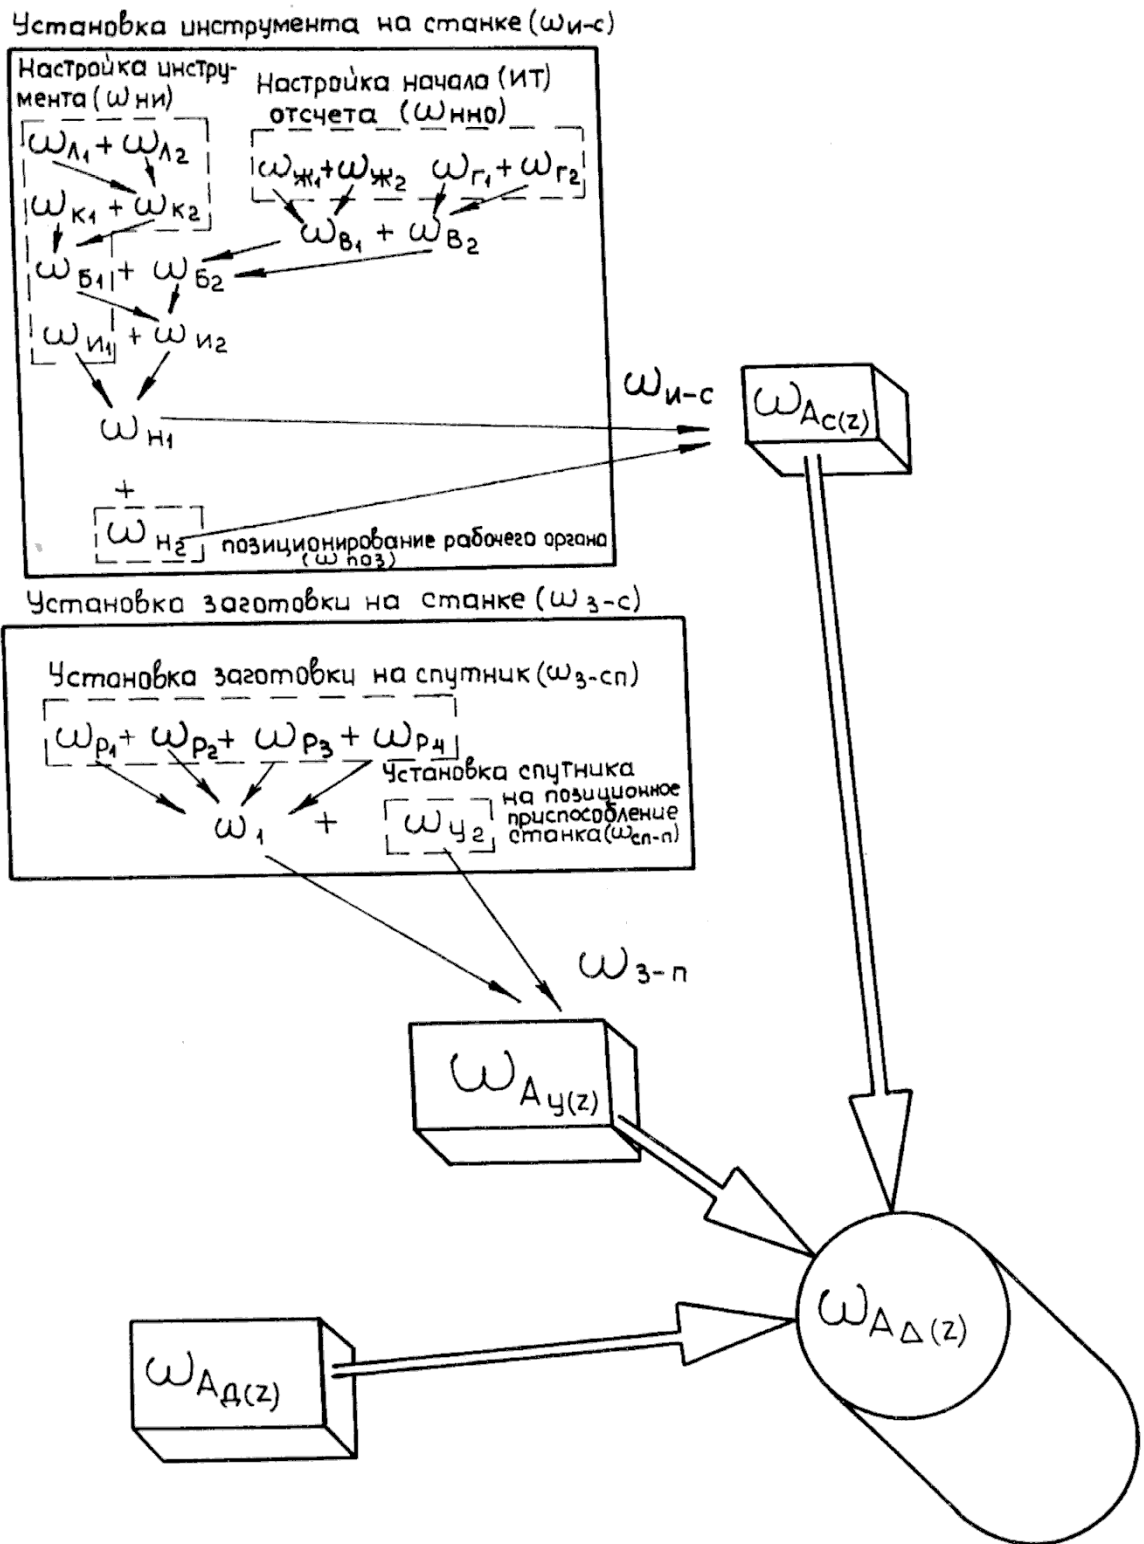 Установка инструмента на станке (ωи-с)
Настройка инстру-
мента (ωни)
Настройка начала (ИТ)
отсчета (ωнно)
ωЛ1 + ωЛ2
ωЖ1 + ωЖ2 ωГ1 + ωГ2
ωК1 + ωК2
ωВ1 + ωВ2
ωБ1 + ωБ2
ωИ1 + ωИ2
ωи-с
ωAС(Z)
ωН1
+
ωН2 позиционирование рабочего органа
(ωпоз)
Установка заготовки на станке (ωз-с)
Установка заготовки на спутник (ωз-сп)
ωР1 + ωР2 + ωР3 + ωР4
Установка спутника
на позиционное
приспособление
станка (ωсп-п)
ω1 + ωУ2
ωз-п
ωAУ(Z)
ωAΔ(Z)
ωAД(Z)